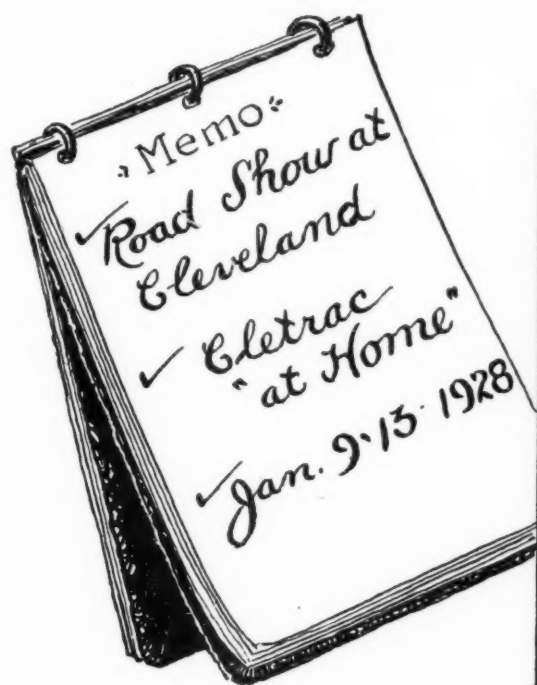 Memo
✓ Road Show at
Cleveland
✓ Cletrac
"at Home"
✓ Jan. 9-13 1928